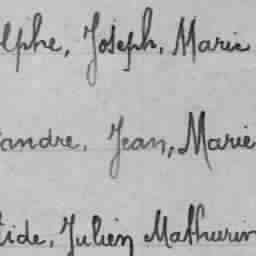 lphe, Joseph, Marie
andre, Jean, Marie
ide, Julien Mathurin